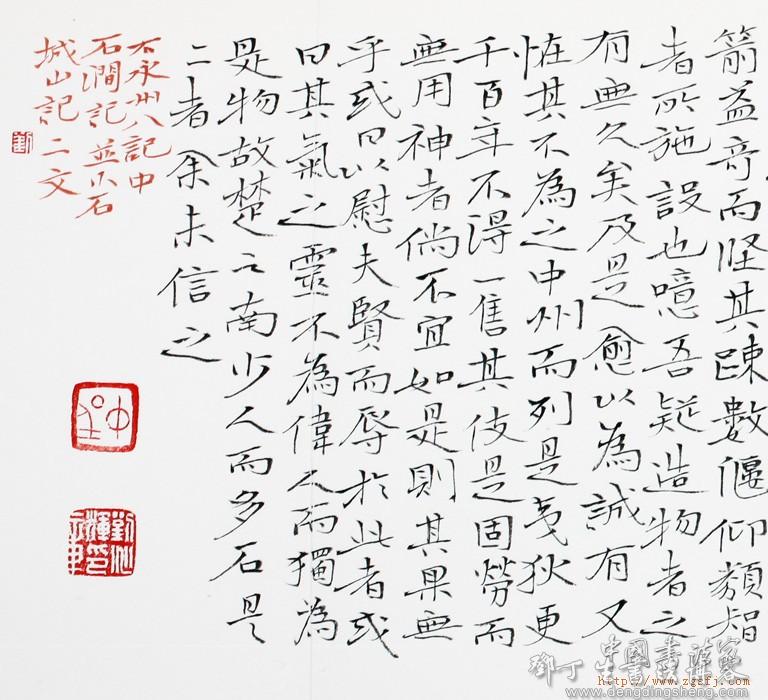 箭益奇而怪其踈數偃仰類智
者所施設也噫吾疑造物者之
有無久矣及是愈以為誠有又
怪其不為之中州而列是夷狄更
千百年不得一售其伎是固勞而
無用神者倘不宜如是則其果無
乎或曰以慰夫賢而辱於此者或
曰其氣之靈不為偉人而獨為
是物故楚之南少人而多石是
二者余未信之
右永州八記中
石澗記並小石
城山記二文
鄧丁生書
中國書法家
http://www.zgsfj.com
www.dengdingsheng.com